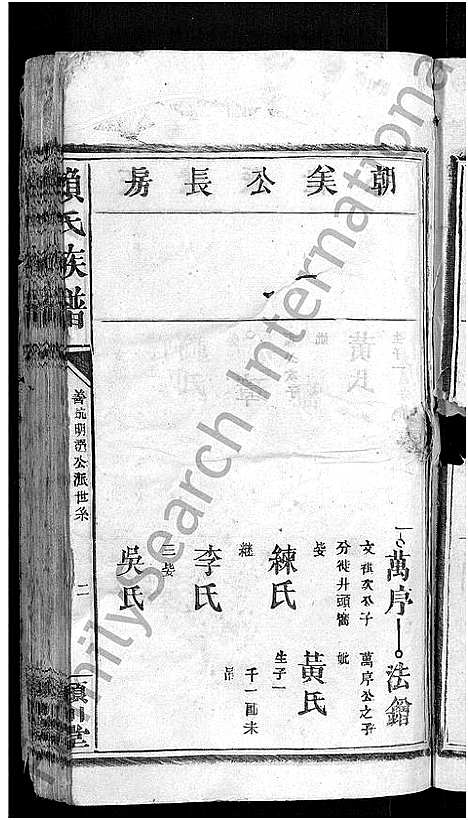 朝矣公長房
萬序
法鎧
文禎次公子
萬序公之子
分徙井頭窩
妣
黃氏
生子一
娶
練氏
千一回未
繼
李氏
三娶
吳氏
賴氏族譜
善坑明清公派世系
二
潁川堂
FamilySearch International